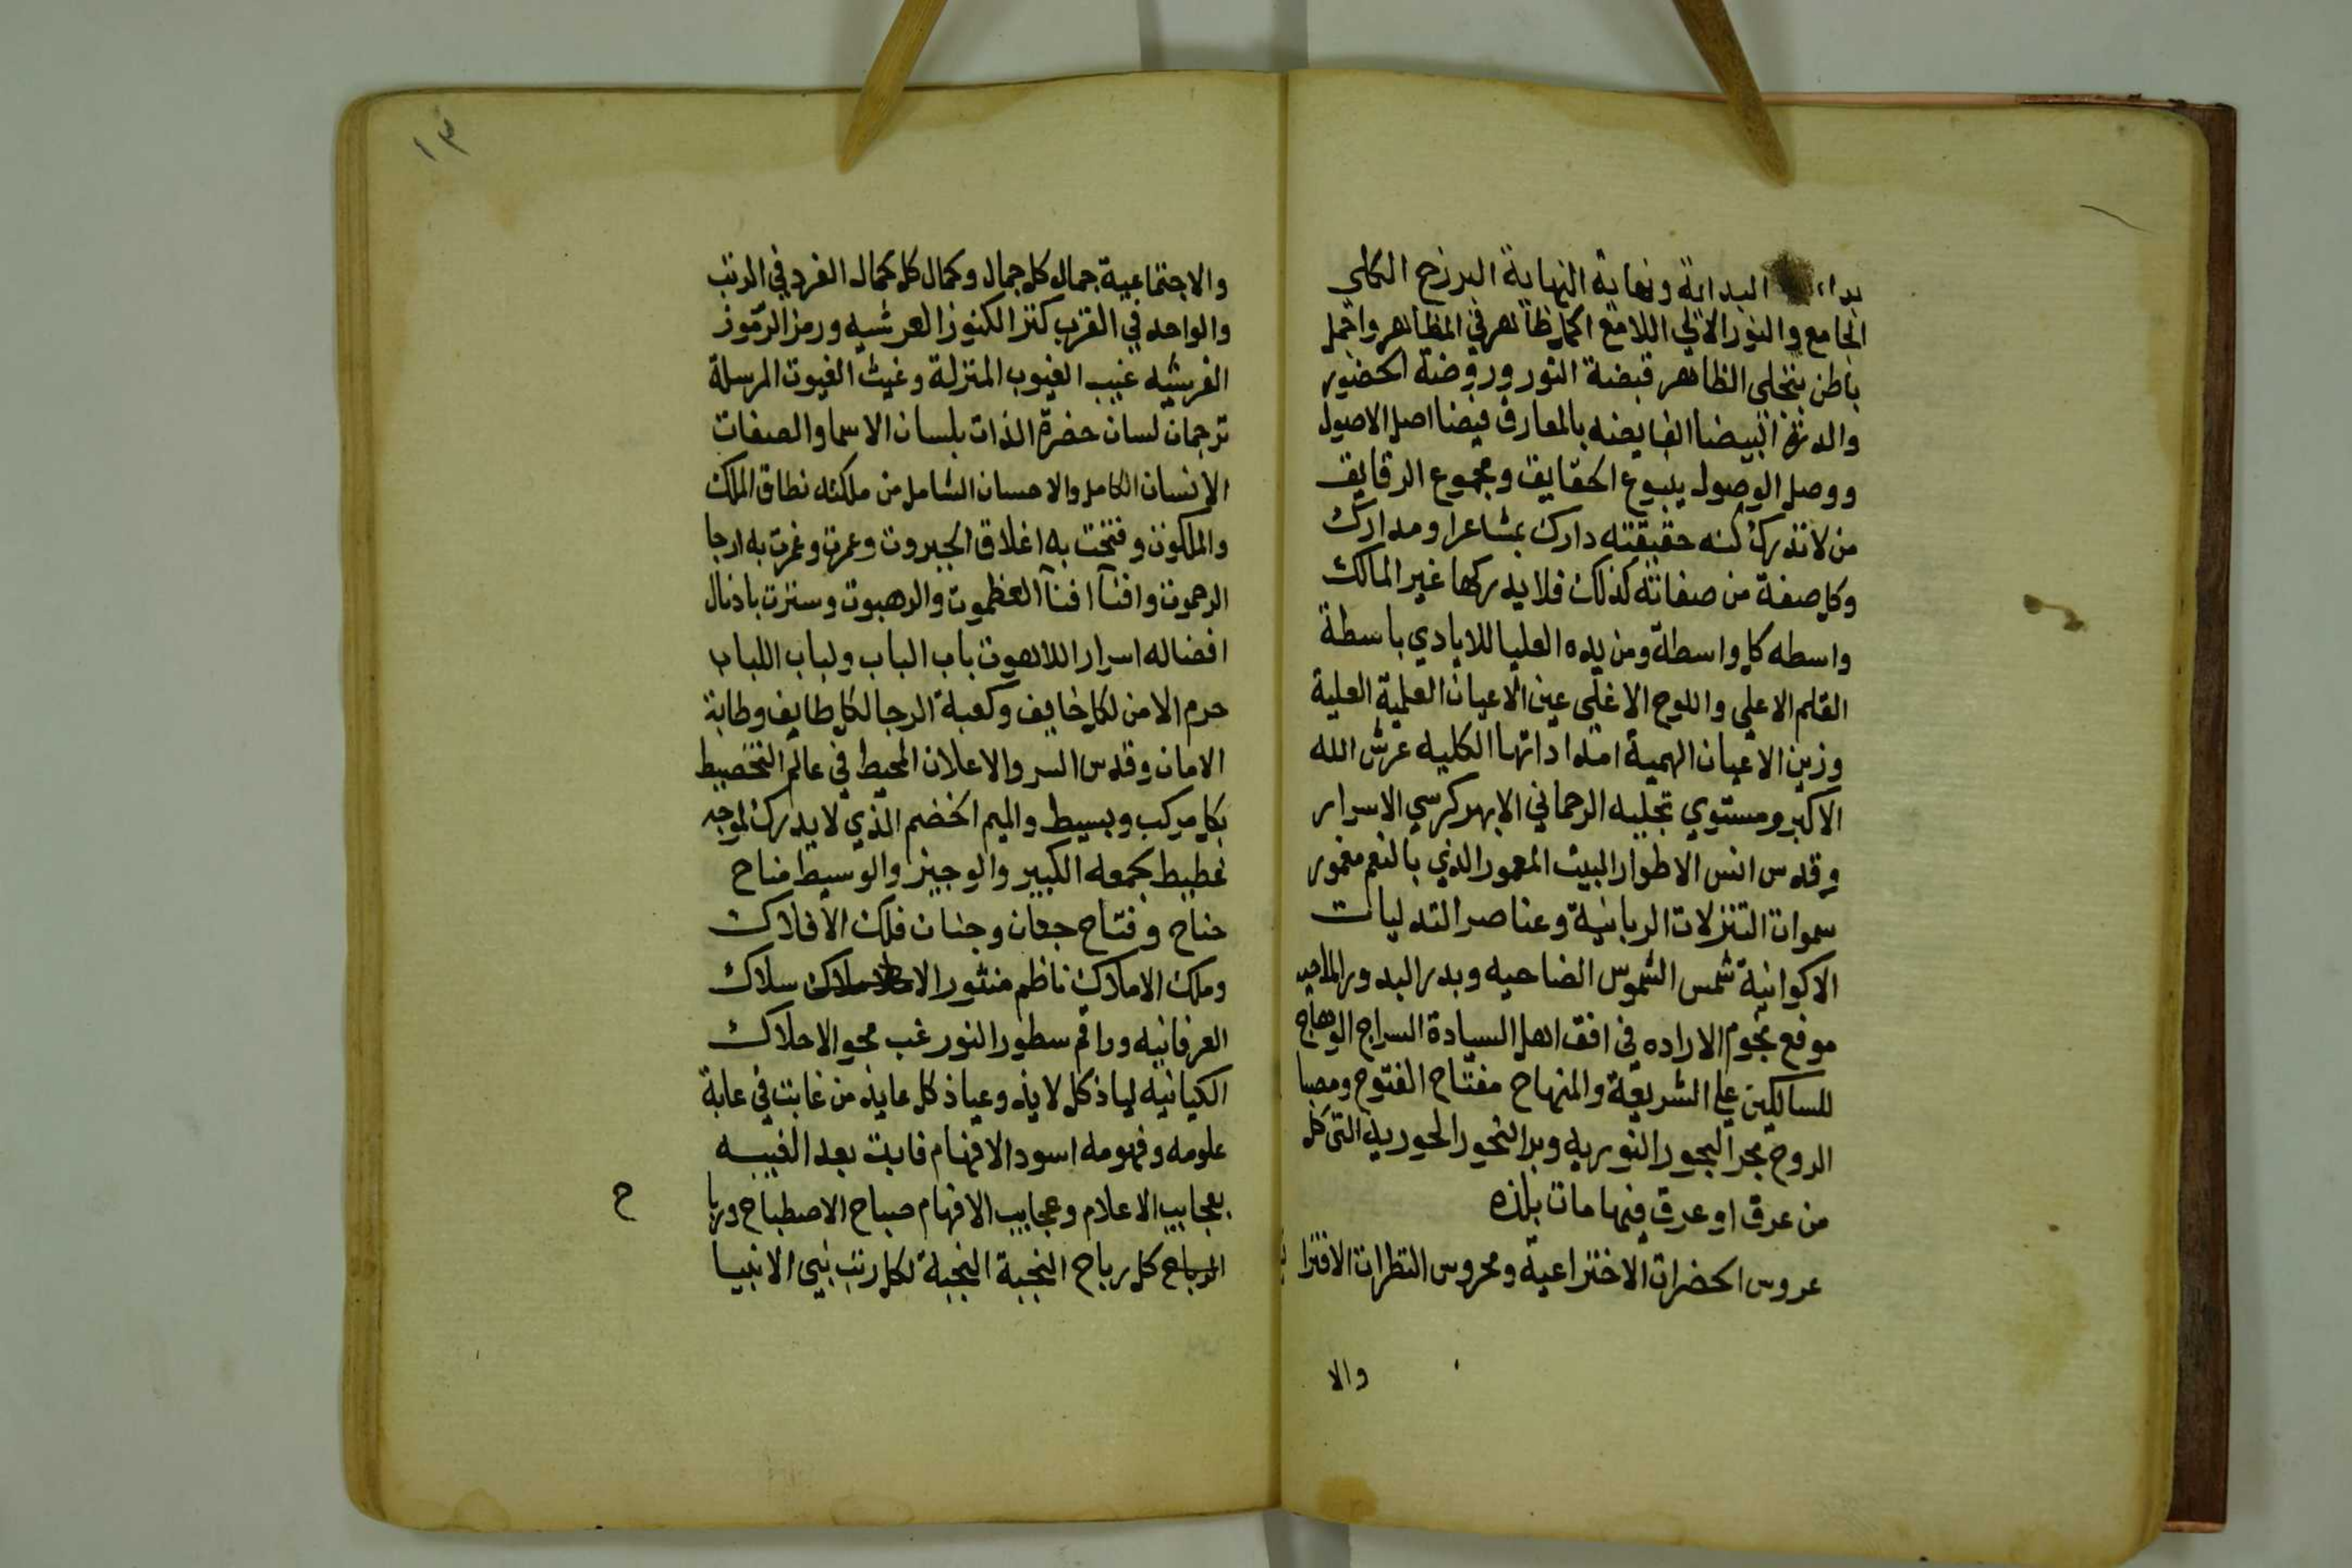 البداية ونهاية النهاية البرزخ الكلي
الجامع والنور الالي اللامع اكمل ظاهر في المظاهر واجمل
باطن بتجلى الظاهر قبضة النور وروضة الحضور
والدرة البيضا الفايضه بالمعارف فيضا اصل الاصول
ووصل الوصول ينبوع الحقايق ومجموع الدقايق
من لا تدرك كنه حقيقته دارك بمشاعرا ومدارك
وكل صفة من صفاته كذلك فلا يدركها غير المالك
واسطه كل واسطة ومن يده العليا للايادي باسطة
القلم الاعلي واللوح الاغلى عين الاعيان العلمية العلية
وزين الاعيان الهمية امتداداتها الكليه عرش الله
الاكبر ومستوي تجليه الرحماني الابهر كرسي الاسرار
وقدس انس الاطوار البيت المعمور الذي بالنعم مغمور
سموات التنزلات الربانية وعناصر التدليات
الاكوانية شمس الشموس الضاحيه وبدر البدور الماحيه
موقع نجوم الاراده في افق اهل السيادة السراج الوهاج
للسالكين علي الشريعة والمنهاج مفتاح الفتوح ومصبا
الروح بحر البحور النوريه وبر النحور الحوريه التي كل
من عرق او عرق فيها مات بلذه
عروس الحضرات الاختراعية ومحروس النظرات الاقترا
والا
١٣
والاجتماعية جمال كل جمال وكمال كل كمال الفرد في الرتب
والواحد في القرب كنز الكنوز العرشيه ورمز الرموز
الفرشيه غيب الغيوب المنزلة وغيث الغيوث المرسلة
ترجمان لسان حضرة الذات بلسان الاسما والصفات
الانسان الكامل والاحسان الشامل من ملكته نطاق الملك
والملكوت وفتحت به اغلاق الجبروت وعمرت وغمرت به ارجا
الرحموت وافنا افنآ العظموت والرهبوت وسترت باذيال
افضاله اسرار اللاهوت باب الباب ولباب اللباب
حرم الامن لكل خايف وكعبة الرجا لكل طايف وطابة
الامان وقدس السر والاعلان المحيط في عالم التخطيط
بكل مركب وبسيط واليم الخضم الذي لا يدرك لموجه
غطيط بجمعه الكبير والوجيز والوسيط مناح
جناح وفتاح جفان وجنان فلك الافلاك
وملك الاملاك ناظم منثور الا سلاك
العرفانيه وراقم سطور النور غب محو الاحلاك
الكيانيه لياذ كل لايذ وعياذ كل عايذ من غابت في غابة
علومه وفهومه اسود الافهام فابت بعد الغيبه
بعجايب الاعلام وعجايب الافهام صباح الاصطباح وربا ح
الرباح كل رباح النخبة النجبة لكل رتب نبي الانبيا